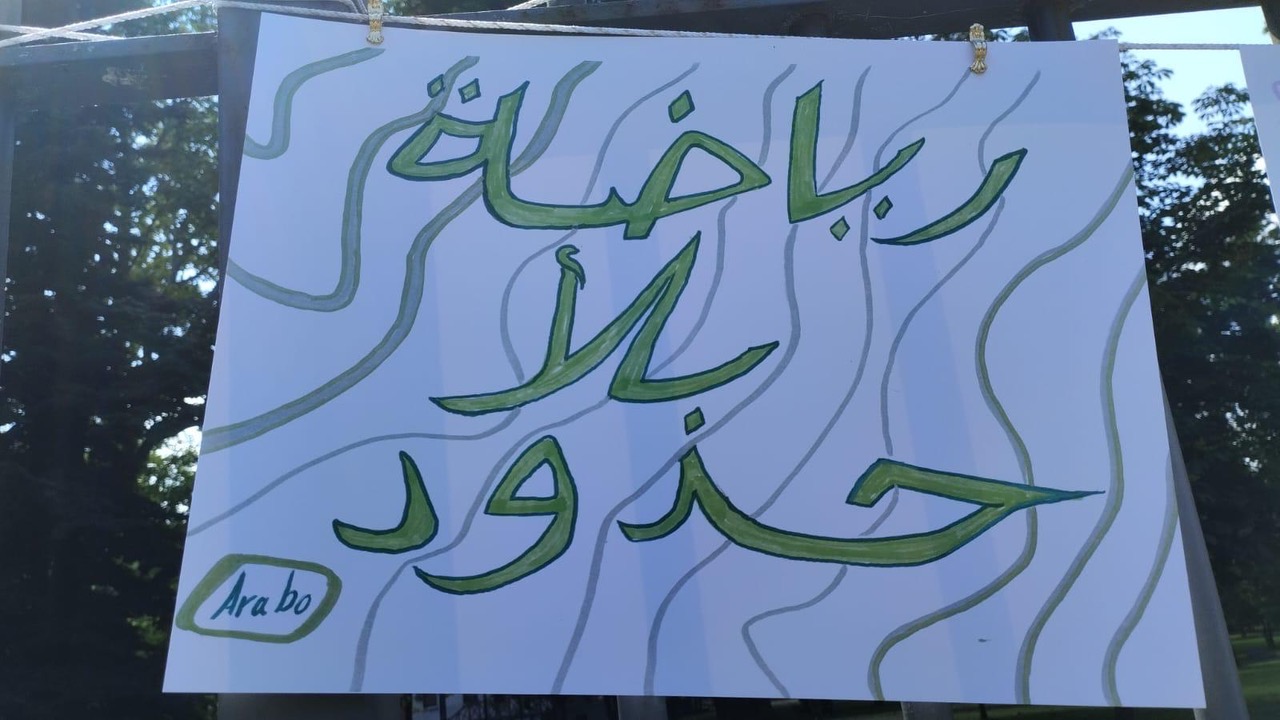 رياضة
بلأ
حدود
Arabo